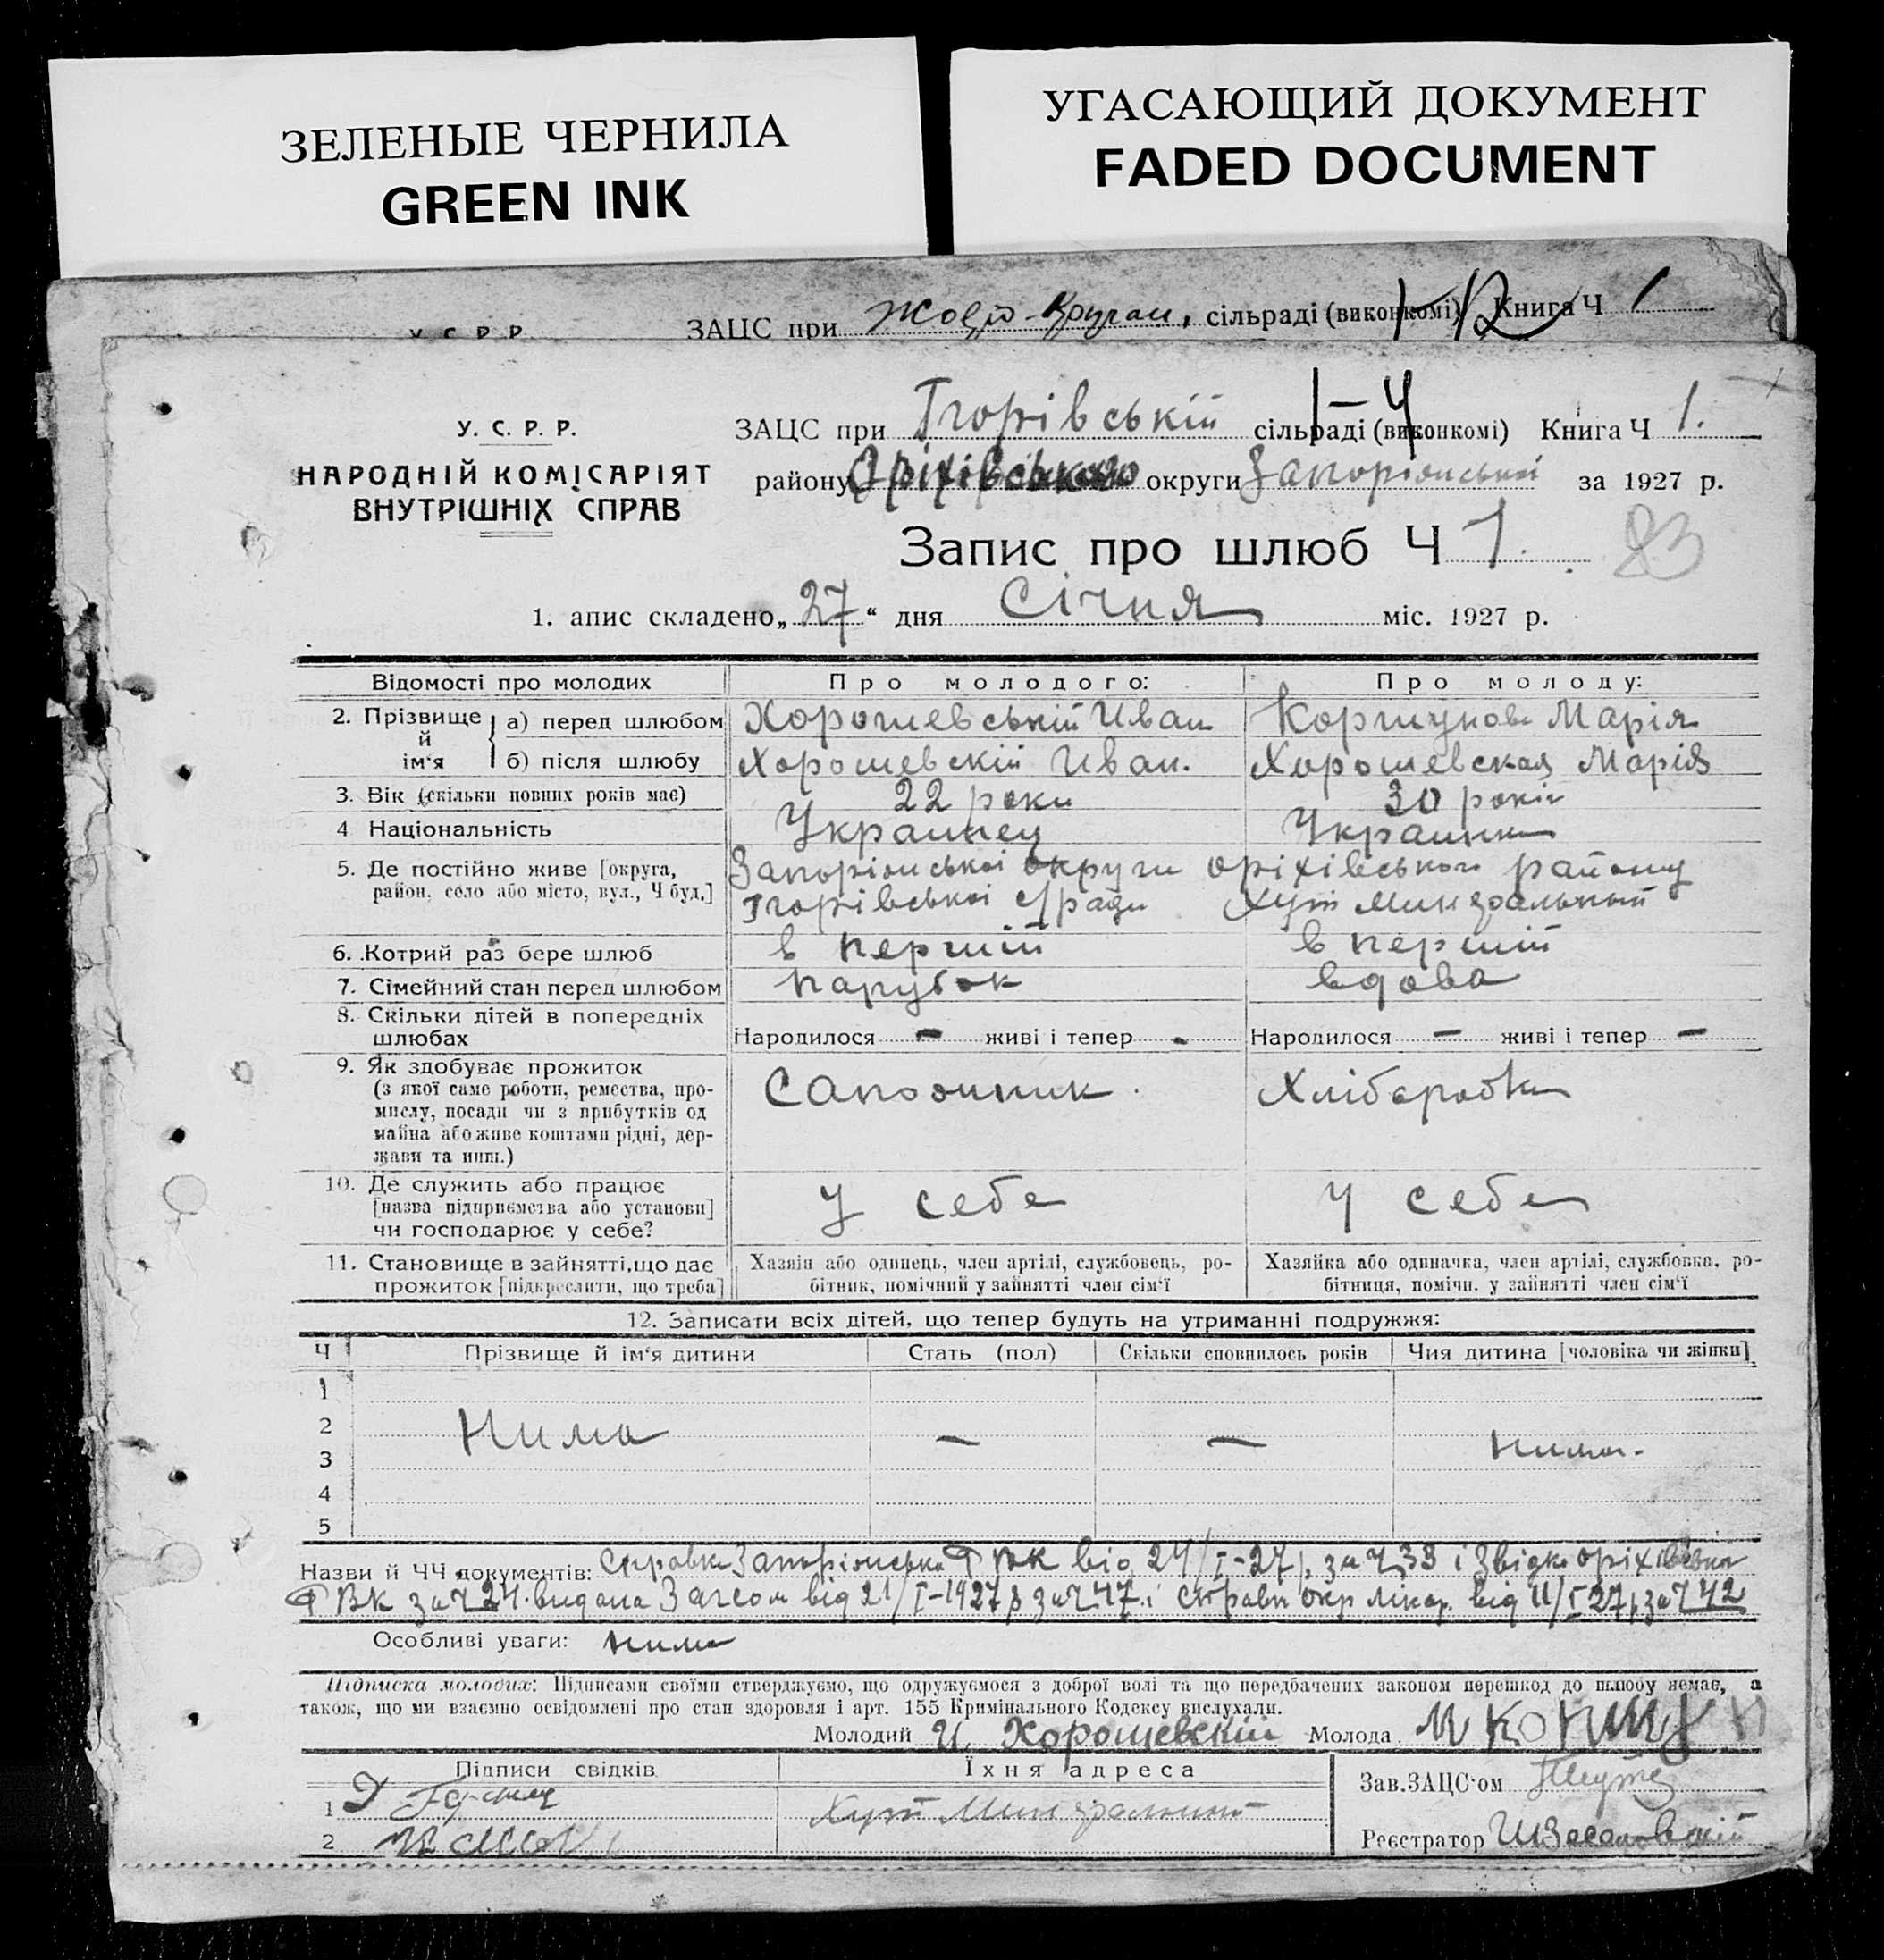 ЗЕЛЕНЫЕ ЧЕРНИЛА
GREEN INK
УГАСАЮЩИЙ ДОКУМЕНТ
FADED DOCUMENT
У. С. Р. Р. ЗАЦС при сільраді (виконкомі) Книга Ч 1
У. С. Р. Р.
НАРОДНІЙ КОМІСАРІЯТ
ВНУТРІШНІХ СПРАВ
ЗАЦС при Ігорівській сільраді (виконкомі) Книга Ч 1.
1–4
району Оріхівського округи Запоріжської за 1927 р.
Запис про шлюб Ч 1.
83
1. апис складено „27“ дня Січня міс. 1927 р.
Відомості про молодих Про молодого: Про молоду:
2. Прізвище й ім‘я а) перед шлюбом Хорошевський Иван Коршунова Марія
б) після шлюбу Хорошевскій Иван. Хорошевская Марія
3. Вік (скільки повних років має) 22 роки 30 років
4 Національність Украинец Украинка
5. Де постійно живе [округа, Запоріжської округи оріхівського району
район, село або місто, вул., Ч буд.] Ігорівської с/ради Хут
6. Котрий раз бере шлюб в перший в перший
7. Сімейний стан перед шлюбом парубок вдова
8. Скільки дітей в попередніх
шлюбах Народилося – живі і тепер - Народилося – живі і тепер –
9. Як здобуває прожиток
(з якої саме роботи, ремества, про- Сапожник. Хлібаробка
мислу, посади чи з прибутків од
майна або живе коштами рідні, дер-
жави та инш.)
10. Де служить або працює
[назва підприємства або установи] У себе У себе
чи господарює у себе?
11. Становище в зайнятті, що дає Хазяїн або одинець, член артілі, службовець, ро- Хазяйка або одиначка, член артілі, службовка, ро-
прожиток [підкреслити, що треба] бітник, помічний у зайнятті член сім‘ї бітниця, помічн. у зайнятті член сім‘ї
12. Записати всіх дітей, що тепер будуть на утриманні подружжя:
Ч Прізвище й ім‘я дитини Стать (пол) Скільки сповнилось років Чия дитина [чоловіка чи жінки]
1
2 Нима – – нима.
3
4
5
Назви й ЧЧ документів: Справка Запоріжська РВК від 24/I-27р. за Ч 33 і
РВК за Ч 24. видана Загсом від 21/I-1927р за Ч 47. і справк окр лікар. від 11/I 27р. за Ч 42
Особливі уваги: нима
Підписка молодих: Підписами своїми стверджуємо, що одружуємося з доброї волі та що передбачених законом перешкод до шлюбу немає, а
також, що ми взаємно освідомлені про стан здоровля і арт. 155 Кримінального Кодексу вислухали.
Молодий И. Хорошевскій Молода М
Підписи свідків Їхня адреса Зав.ЗАЦС‘ом
1 Хут
2 Реєстратор